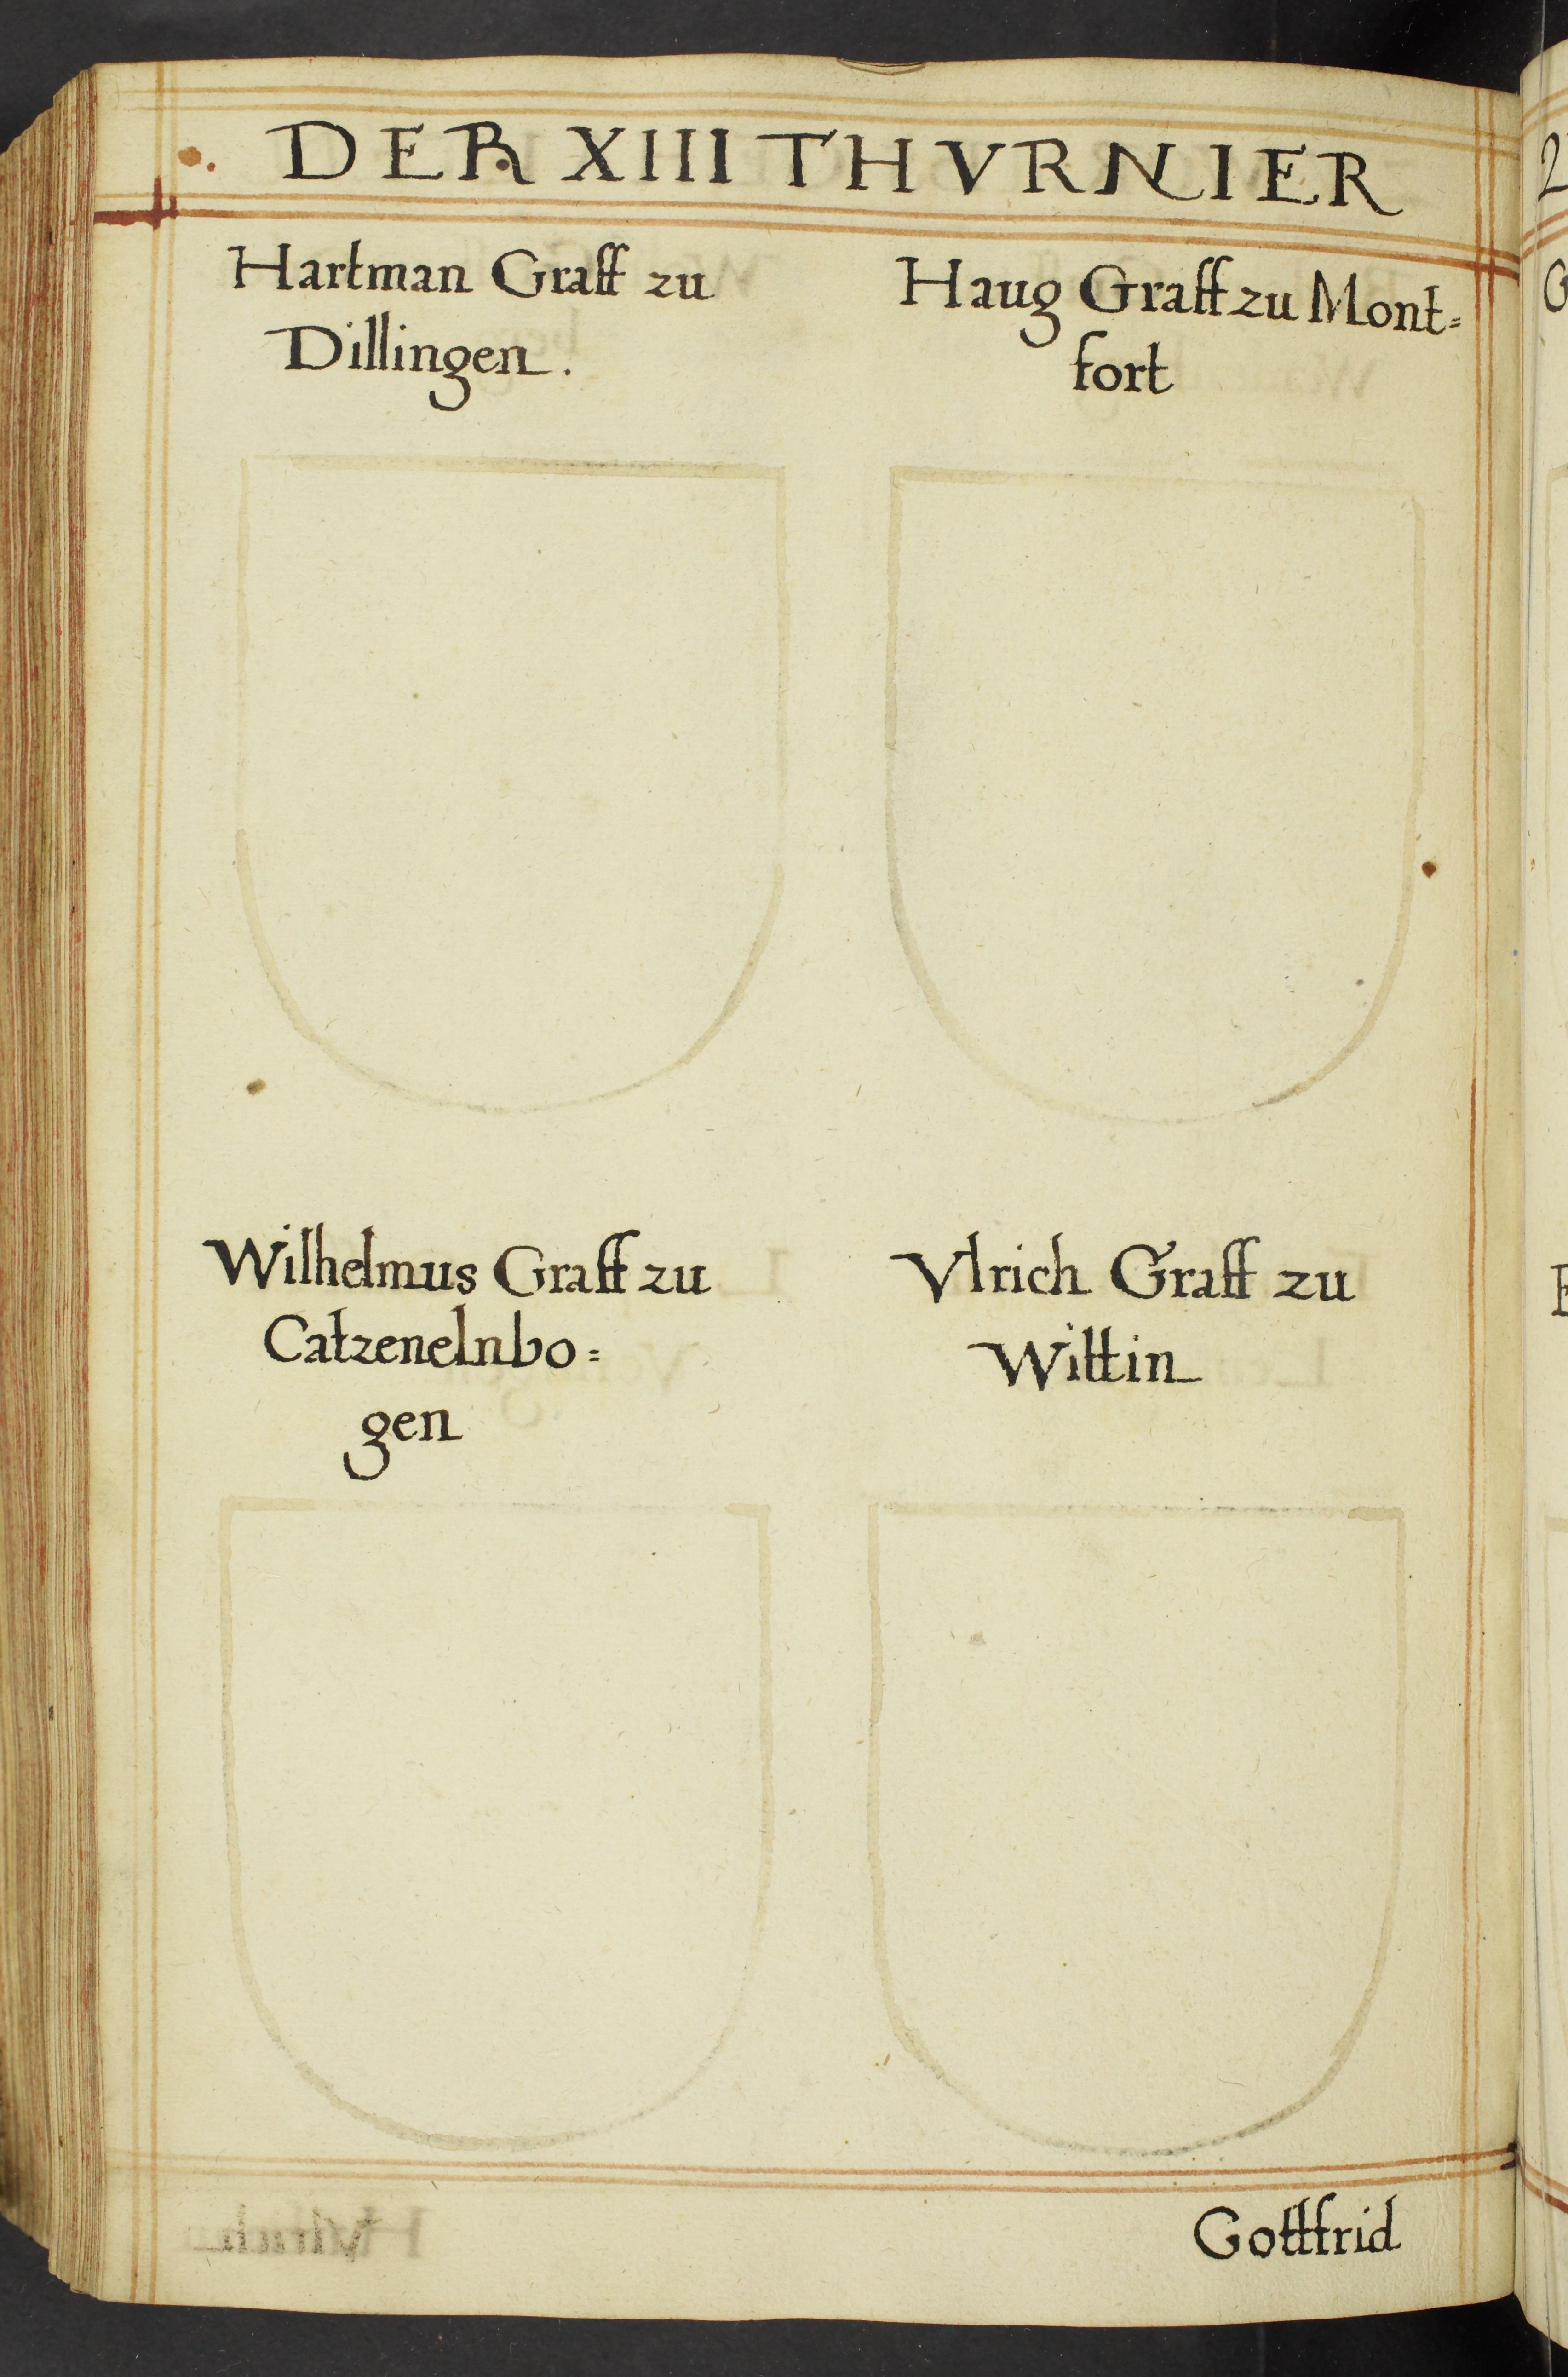 DER XIIII THVRNIER
Hartman Graff zu
Dillingen.
Haug Graff zu Mont=
fort
Wilhelmus Graff zu
Catzenelnbo=
gen
Vlrich Graff zu
Wittin
Gottfrid